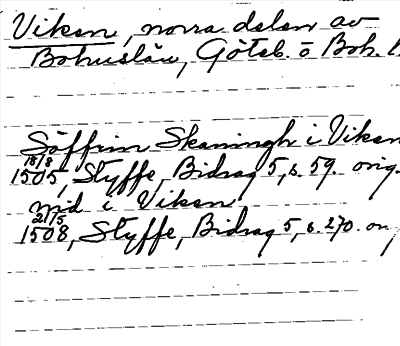 Viken, norra delen av
Bohuslän, Göteb. o Boh. l
Söffrin Skaningh i Viken
18/8
1505, Styffe, Bidrag 5, s. 59. orig.
mid i Viken
21/5
1508, Styffe, Bidrag 5, s. 270. or